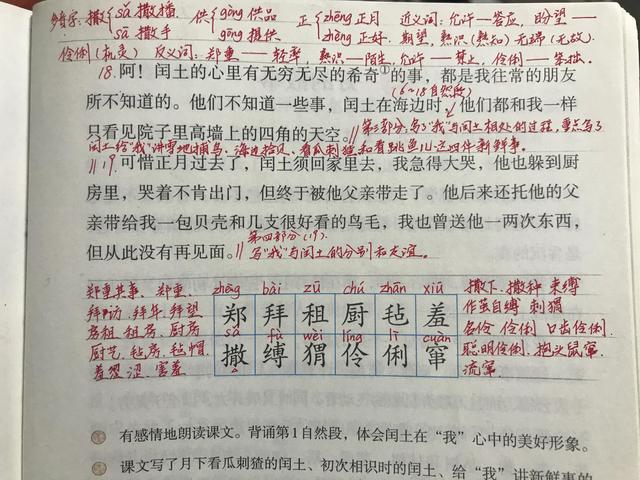 多音字：撒{sǎ 撒播 供{gōng 供品 正{zhēng 正月 近义词：允许——答应，盼望——
sā 撒手 gōng 提供 zhèng 正好. 期望，熟识（熟知）无端（无故）.
伶俐（机灵） 反义词：郑重——轻率，熟识——陌生，允许——禁止，伶俐——笨拙.
18.阿！闰土的心里有无穷无尽的希奇①的事，都是我往常的朋友
所不知道的。他们不知道一些事，闰土在海边时，他们都和我一样
(6~18自然段)
只看见院子里高墙上的四角的天空。//第三部分，写了“我”与闰土相处的过程，重点写了
闰土给“我”讲雪地捕鸟、海边拾贝、看瓜刺猹和看跳鱼儿这四件新鲜事.
//19.可惜正月过去了，闰土须回家里去，我急得大哭，他也躲到厨
房里，哭着不肯出门，但终于被他父亲带走了。他后来还托他的父
亲带给我一包贝壳和几支很好看的鸟毛，我也曾送他一两次东西，
但从此没有再见面。//第四部分(19).
写“我”与闰土的分别和友谊。
郑重其事、郑重、 zhèng bài zū chú zhān xiū 撒下、撒种 束缚
拜访、拜年、拜望 郑 拜 租 厨 毡 羞 作茧自缚 刺猬
房租、租房、厨房 sǎ fù wèi líng lì cuàn 名伶 伶俐 口齿伶俐.
厨艺、毡房、毡帽 撒 缚 猬 伶 俐 窜 聪明伶俐、抱头鼠窜.
羞涩、害羞 流窜.
有感情地朗读课文。背诵第1自然段，体会闰土在“我”心中的美好形象。
课文写了月下看瓜刺猹的闰土、初次相识时的闰土、给“我”讲新鲜事的